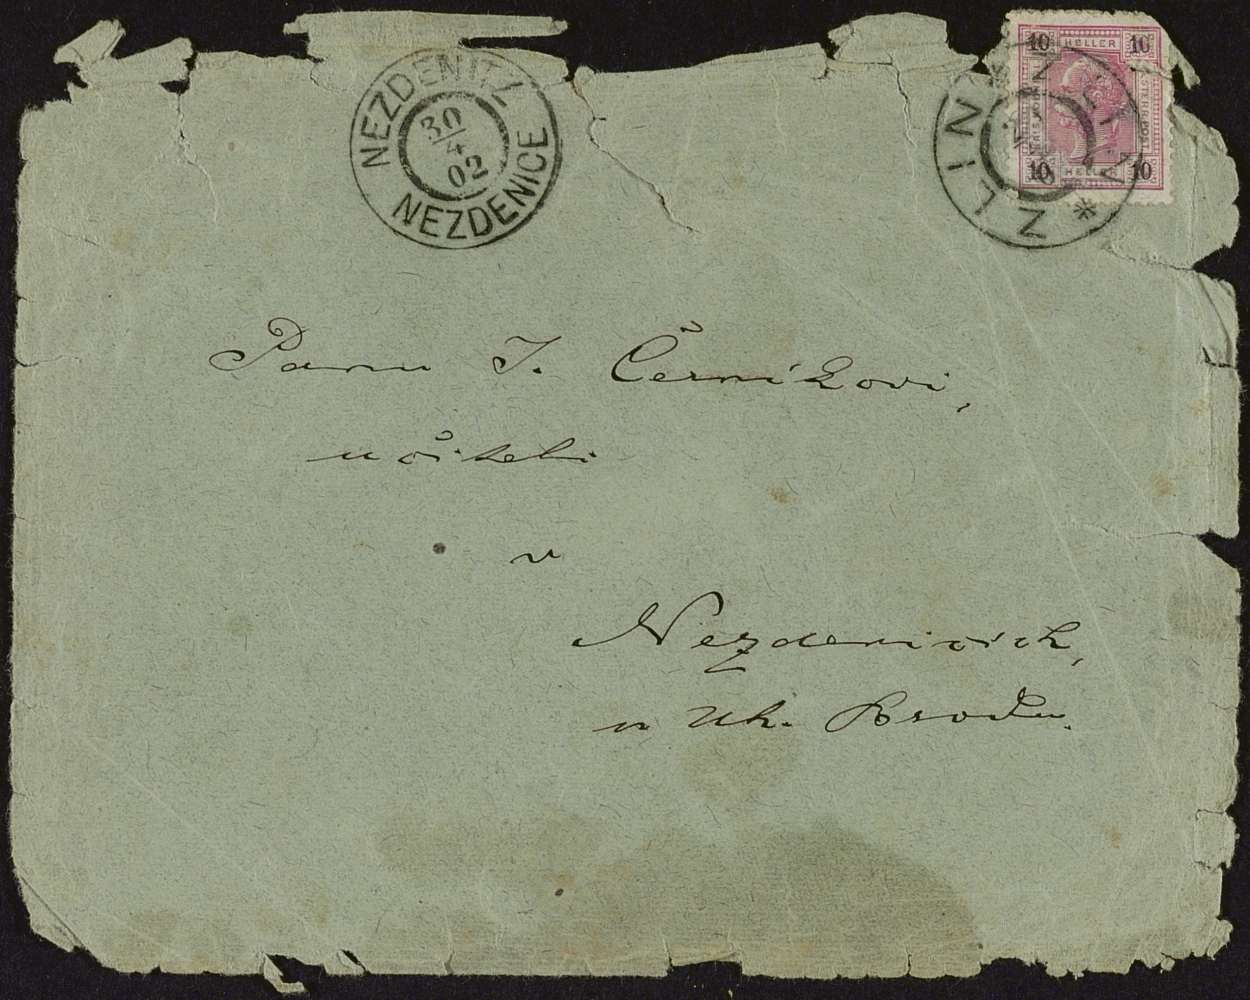 NEZDENITZ
30
4
02
NEZDENICE
10 HELLER 10
10 HELLER 10
ZLIN
Panu J. Černíkovi,
učiteli
v
Nezdenicích,
u Uh. Brodu.